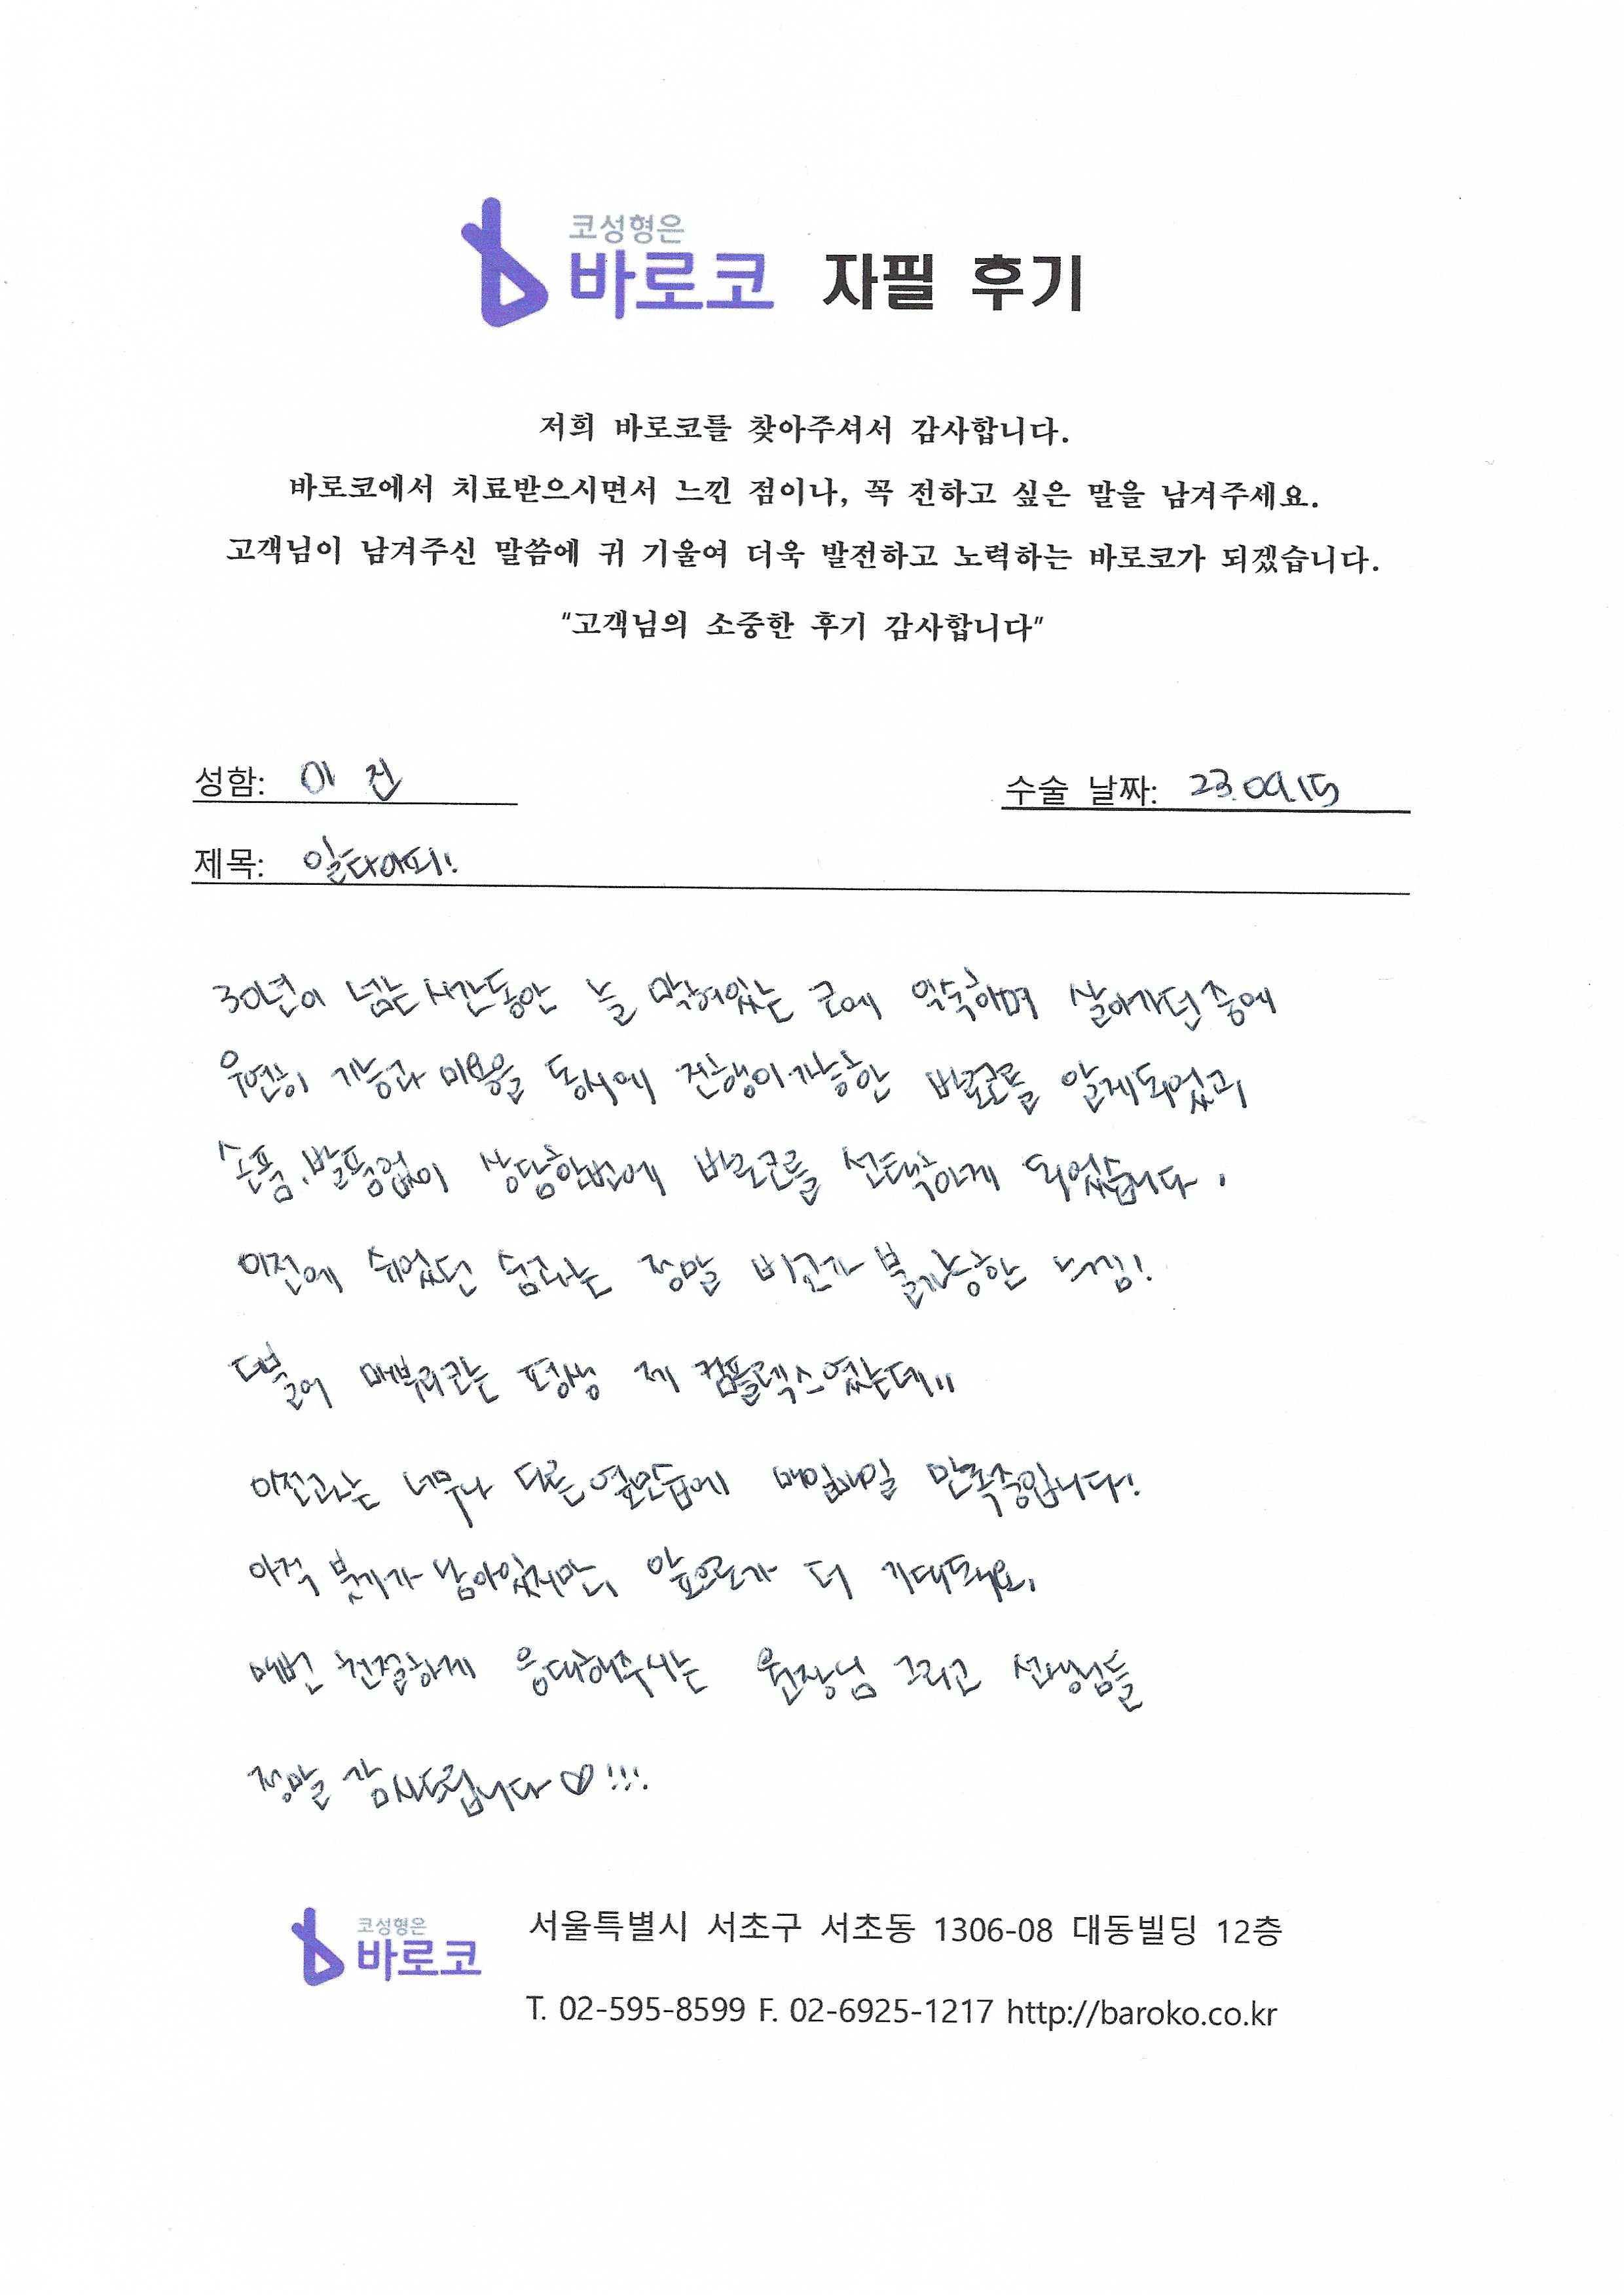 코성형은
바로코 자필 후기
저희 바로코를 찾아주셔서 감사합니다.
바로코에서 치료받으시면서 느낀 점이나, 꼭 전하고 싶은 말을 남겨주세요.
고객님이 남겨주신 말씀에 귀 기울여 더욱 발전하고 노력하는 바로코가 되겠습니다.
"고객님의 소중한 후기 감사합니다"
성함: 이 진 수술 날짜: 23.09.15
제목: 일타이피!
30년이 넘는 시간동안 늘 막혀있는 코에 익숙하며 살아가던 중에
우연히 기능과 미용을 동시에 진행이 가능한 바로코를 알게되었고
손품, 발품없이 상담한번에 바로코를 선택하게 되었습니다.
이전에 쉬었던 숨과는 정말 비교가 불가능한 느낌!
더불어 매부리코는 평생 제 컴플렉스였는데..
이전과는 너무나 다른 옆모습에 매일매일 만족중입니다!
아직 붓기가 남아있지만, 앞으로가 더 기대돼요.
매번 친절하게 응대해주시는 원장님 그리고 선생님들
정말 감사드립니다♡!!!
코성형은
바로코
서울특별시 서초구 서초동 1306-08 대동빌딩 12층
T. 02-595-8599 F. 02-6925-1217 http://baroko.co.kr